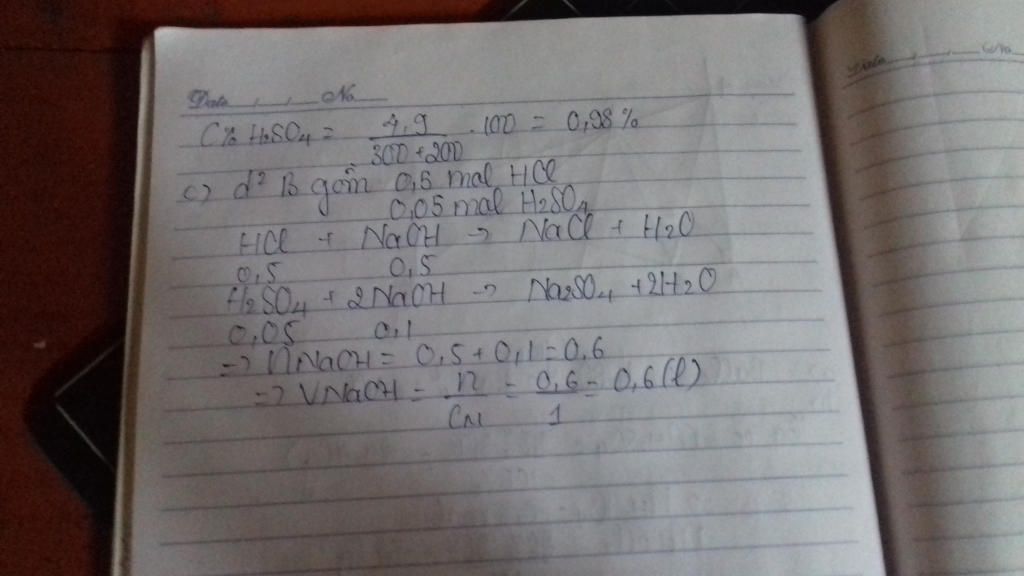 Date . , No
C% H2SO4 = 4,9 / 300 + 200 . 100 = 0,98 %
c) d² B gồm 0,5 mal HCl
0,05 mal H2SO4
HCl + NaOH -> NaCl + H2O
0,5 0,5
H2SO4 + 2NaOH -> Na2SO4 + 2H2O
0,05 0,1
=> nNaOH = 0,5 + 0,1 = 0,6
=> VNaOH = n / CM = 0,6 / 1 = 0,6 (l)
Date , , No